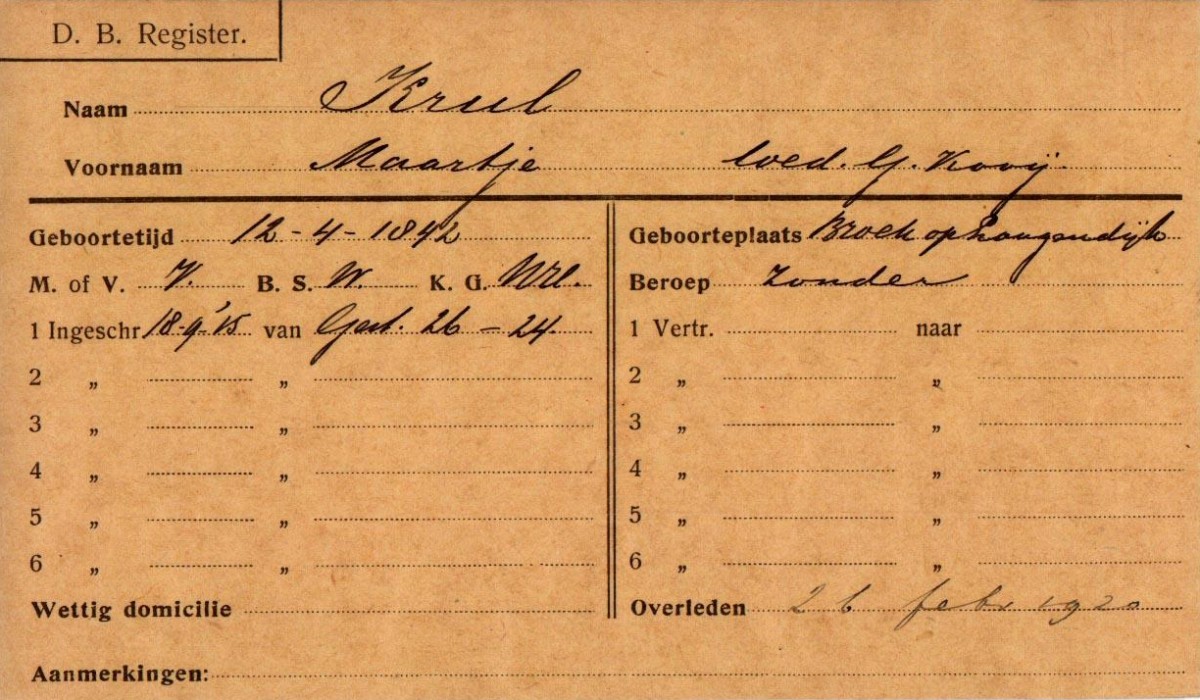 D. B. Register.
Naam Krul
Voornaam Maartje wed. G. Kooij.
Geboortetijd 12-4-1842 Geboorteplaats Broek op Langendijk
M. of V. V. B. S. W. K. G. NH.
Beroep Zonder
1 Ingeschr 18-9-'15 van Gast. 26-24. 1 Vertr. naar
2 „ „ 2 „ „
3 „ „ 3 „ „
4 „ „ 4 „ „
5 „ „ 5 „ „
6 „ „ 6 „ „
Wettig domicilie Overleden 26 febr 1920
Aanmerkingen: